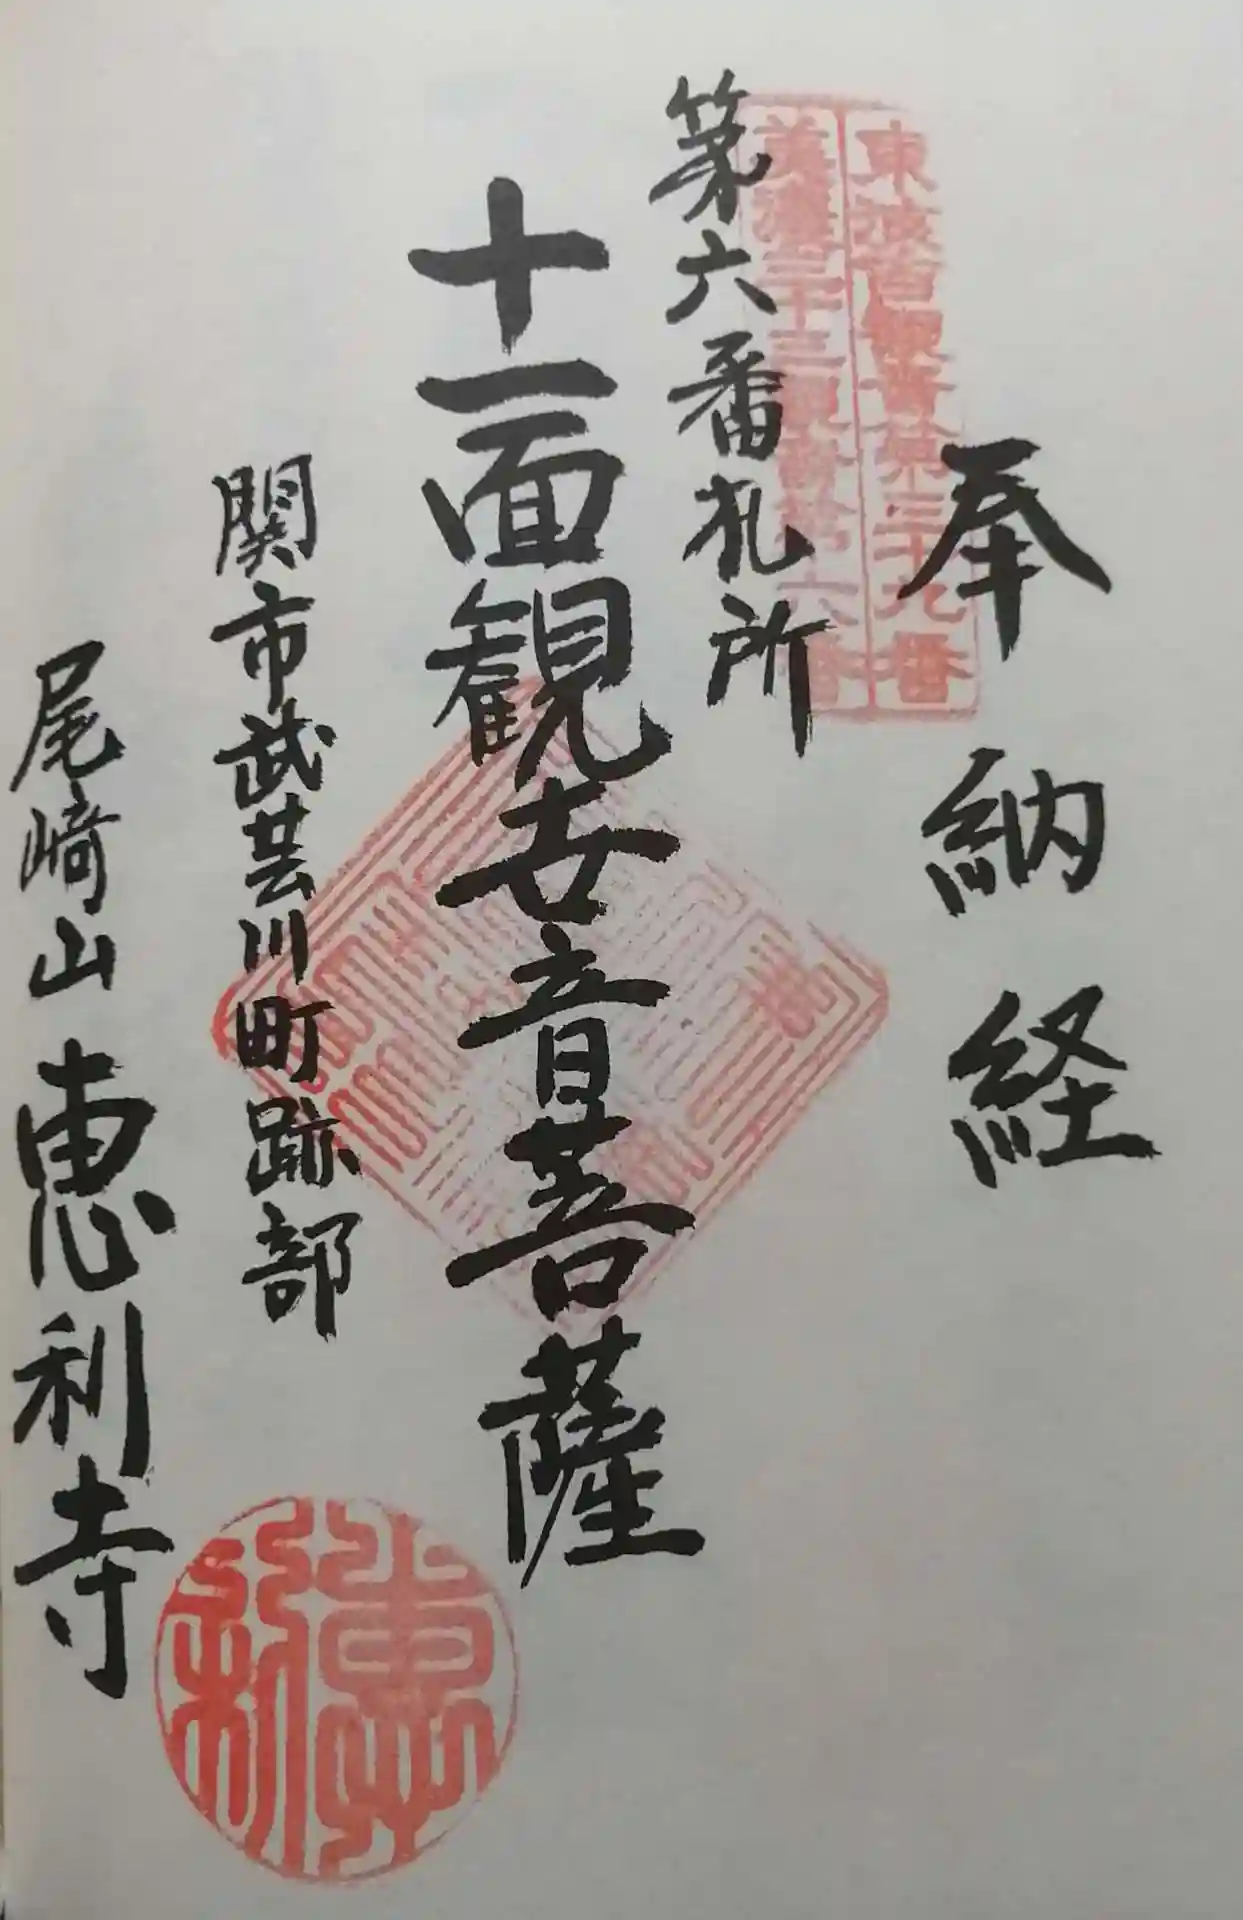 奉納経
東濃百観音第三十九番
美濃三十三観音第六番
第六番札所
十一面観世音菩薩
関市武芸川町跡部
尾﨑山恵利寺